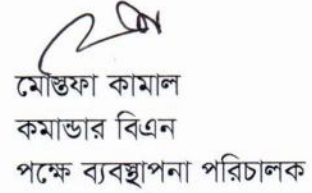 মোস্তফা কামাল
কমান্ডার বিএন
পক্ষে ব্যবস্থাপনা পরিচালক